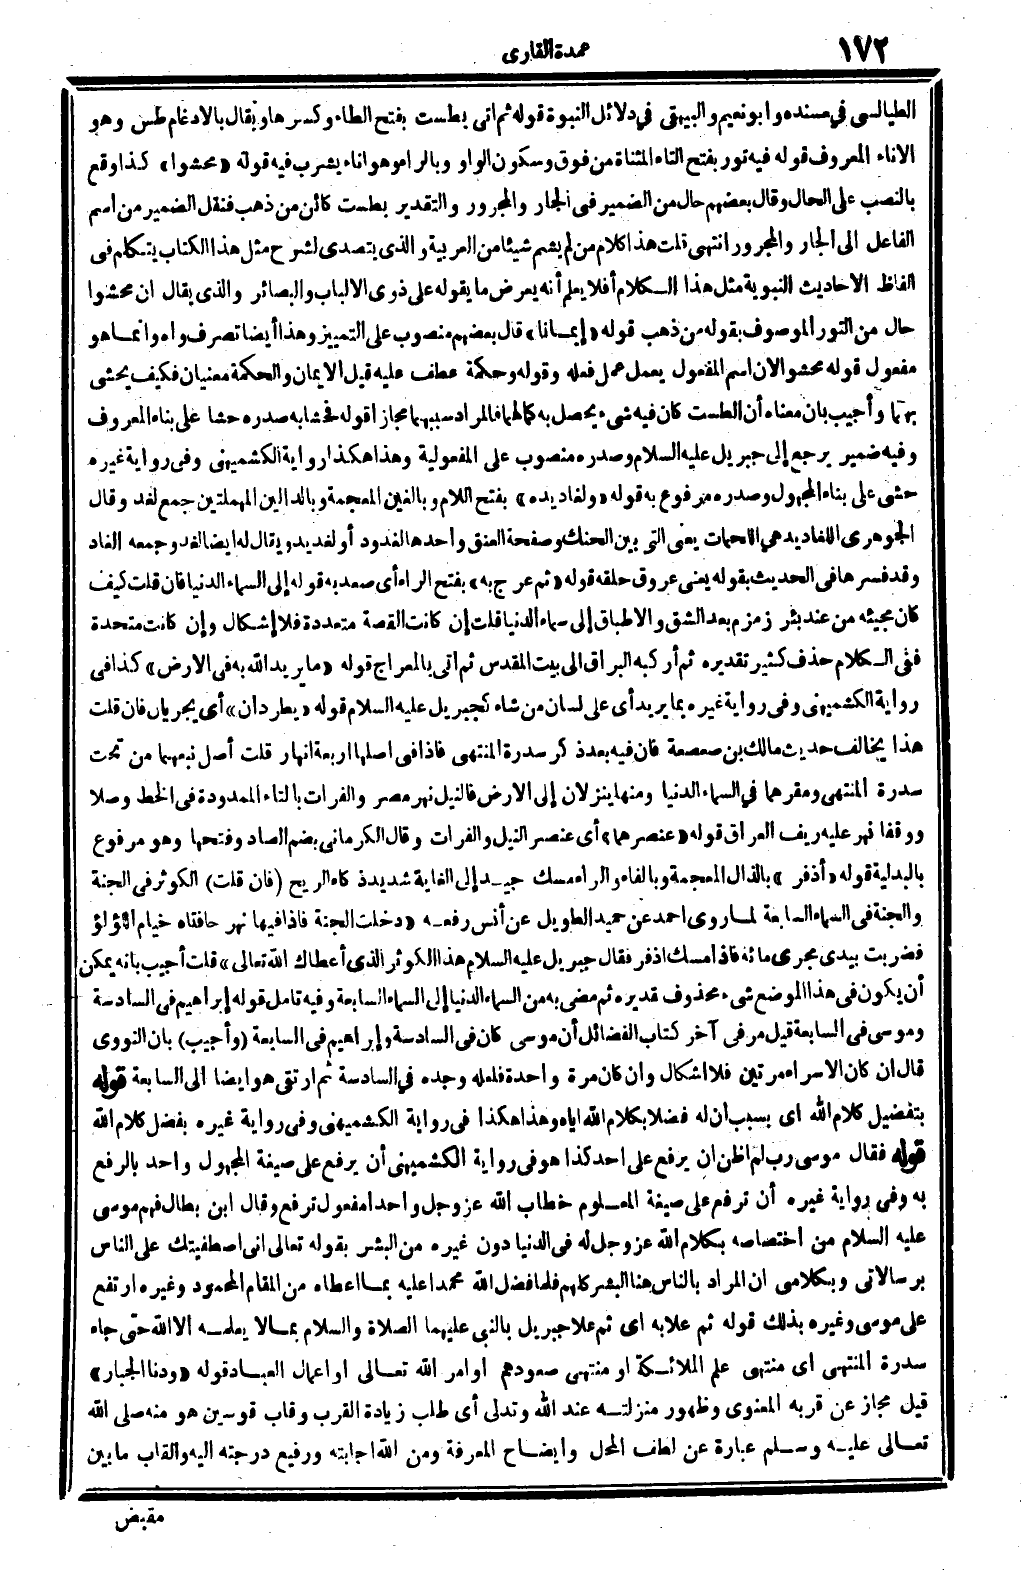 ١٧٢
عمدة القارى
الطيالسى فى مسنده وابو نعيم والبيهقى فى دلائل النبوة قوله ثم اتى بطست بفتح الطاء وكسرها ويقال بالادغام طس وهو
الاناء المعروف قوله فيه تور بفتح التاء المثناة من فوق وسكون الواو وبالراء وهو اناء يشرب فيه قوله «محشوا» كذا وقع
بالنصب على الحال وقال بعضهم حال من الضمير فى الجار والمجرور والتقدير بطست كائن من ذهب فنقل الضمير من اسم
الفاعل الى الجار والمجرور انتهى قلت هذا كلام من لم يشم شيئا من العربية والذى يتصدى لشرح مثل هذا الكتاب يتكلم فى
الفاظ الاحاديث النبوية مثل هذا الـكلام أفلا يعلم أنه يعرض ما يقوله على ذوى الالباب والبصائر والذى يقال ان محشوا
حال من التور الموصوف بقوله من ذهب قوله «إيمـانا» قال بعضهم منصوب على التمييز وهذا أيضا تصرف واه وانمـا هو
مفعول قوله محشوا لان اسم المفعول يعمل عمل فعله وقوله وحكمة عطف عليه قيل الايمان والحكمة معنيان فكيف يحشى
بهما وأجيب بان معناه أن الطست كان فيه شىء يحصل به كمالهما فالمراد سببهما مجازا قوله فحشا به صدره حشا على بناء المعروف
وفيه ضمير يرجع إلى جبريل عليه السلام وصدره منصوب على المفعولية وهذا هكذا رواية الكشميهنى وفى رواية غيره
حشى على بناء المجهول وصدره مرفوع به قوله «ولغاديده» بفتح اللام وبالغين المعجمة وبالدالين المهملتين جمع لغد وقال
الجوهرى اللغاديد هى اللحمات يعنى التى بين الحنك وصفحة العنق واحدها لغدود أو لغديد ويقال له ايضا لغد وجمعه الغاد
وقد فسرها فى الحديث بقوله يعنى عروق حلقه قوله «ثم عرج به» بفتح الراء أى صعد به قوله إلى السماء الدنيا فان قلت كيف
كان مجيئه من عند بئر زمزم بعد الشق والاطباق إلى سماء الدنيا قلت إن كانت القصة متعددة فلا إشكال وإن كانت متحدة
ففى الـكلام حذف كثير تقديره ثم أركبه البراق الى بيت المقدس ثم اتى بالمعراج قوله «ما يريد الله به فى الارض» كذا فى
رواية الكشميهنى وفى رواية غيره بما يريد أى على لسان من شاء كجبريل عليه السلام قوله «يطردان» أى يجريان فان قلت
هذا يخالف حديث مالك بن صعصعة فان فيه بعد ذكر سدرة المنتهى فاذا فى اصلها اربعة انهار قلت أصل نبعهما من تحت
سدرة المنتهى ومقرهما فى السماء الدنيا ومنها ينزلان إلى الارض فالنيل نهر مصر والفرات بالتاء الممدودة فى الخط وصلا
ووقفا نهر عليه ريف العراق قوله «عنصرهما» أى عنصر النيل والفرات وقال الكرمانى بضم الصاد وفتحها وهو مرفوع
بالبدلية قوله «أذفر» بالذال المعجمة وبالفاء والراء مسك جيـد إلى الغاية شديد ذكاء الريح (فان قلت) الكوثر فى الجنة
والجنة فى السماء السابعة لمـا روى احمد عن حميد الطويل عن أنس رفعـه «دخلت الجنة فاذا فيها نهر حافتاه خيام اللؤلؤ
فضربت بيدى مجرى مائه فاذا مسك اذفر فقال جبريل عليه السلام هذا الكوثر الذى أعطاك الله تعالى» قلت أجيب بانه يمكن
أن يكون فى هذا الموضع شىء محذوف تقديره ثم مضى به من السماء الدنيا إلى السماء السابعة وفيه تامل قوله إبراهيم فى السادسة
وموسى فى السابعة قيل مر فى آخر كتاب الفضائل أن موسى كان فى السادسة وإبراهيم فى السابعة (وأجيب) بان النووى
قال ان كان الاسراء مرتين فلا اشكال وان كان مرة واحدة فلعله وجده فى السادسة ثم ارتقى هو ايضا الى السابعة قوله
بتفضيل كلام الله اى بسبب ان له فضلا بكلام الله اياه وهذا هكذا فى رواية الكشميهنى وفى رواية غيره بفضل كلام الله
قوله فقال موسى رب لم اظن ان يرفع على احد كذا هو فى رواية الكشميهنى أن يرفع على صيغة المجهول واحد بالرفع
به وفى رواية غيره أن ترفع على صيغة المعـلوم خطاب الله عز وجل واحدا مفعول ترفع وقال ابن بطال فهم موسى
عليه السلام من اختصاصه بـكلام الله عز وجل له فى الدنيا دون غيره من البشر بقوله تعالى انى اصطفيتك على الناس
برسالاتى وبكلامى ان المراد بالناس هنا البشر كلهم فلما فضل الله محمدا عليه بمـا اعطاه من المقام المحمود وغيره ارتفع
على موسى وغيره بذلك قوله ثم علا به اى ثم علا جبريل بالنبى عليهما الصلاة والسلام بمـالا يعلمـه الا الله حتى جاء
سدرة المنتهى اى منتهى علم الملائـكة او منتهى صعودهم او امر الله تعـالى او اعمال العبـاد قوله «ودنا الجبار»
قيل مجاز عن قربه المعنوى وظهور منزلتـه عند الله وتدلى أى طلب زيادة القرب وقاب قوسين هو منه صلى الله
تعـالى عليـه وسـلم عبارة عن لطف المحل وايضـاح المعرفة ومن الله اجابته ورفيع درجته اليه والقاب ما بين
مقبض